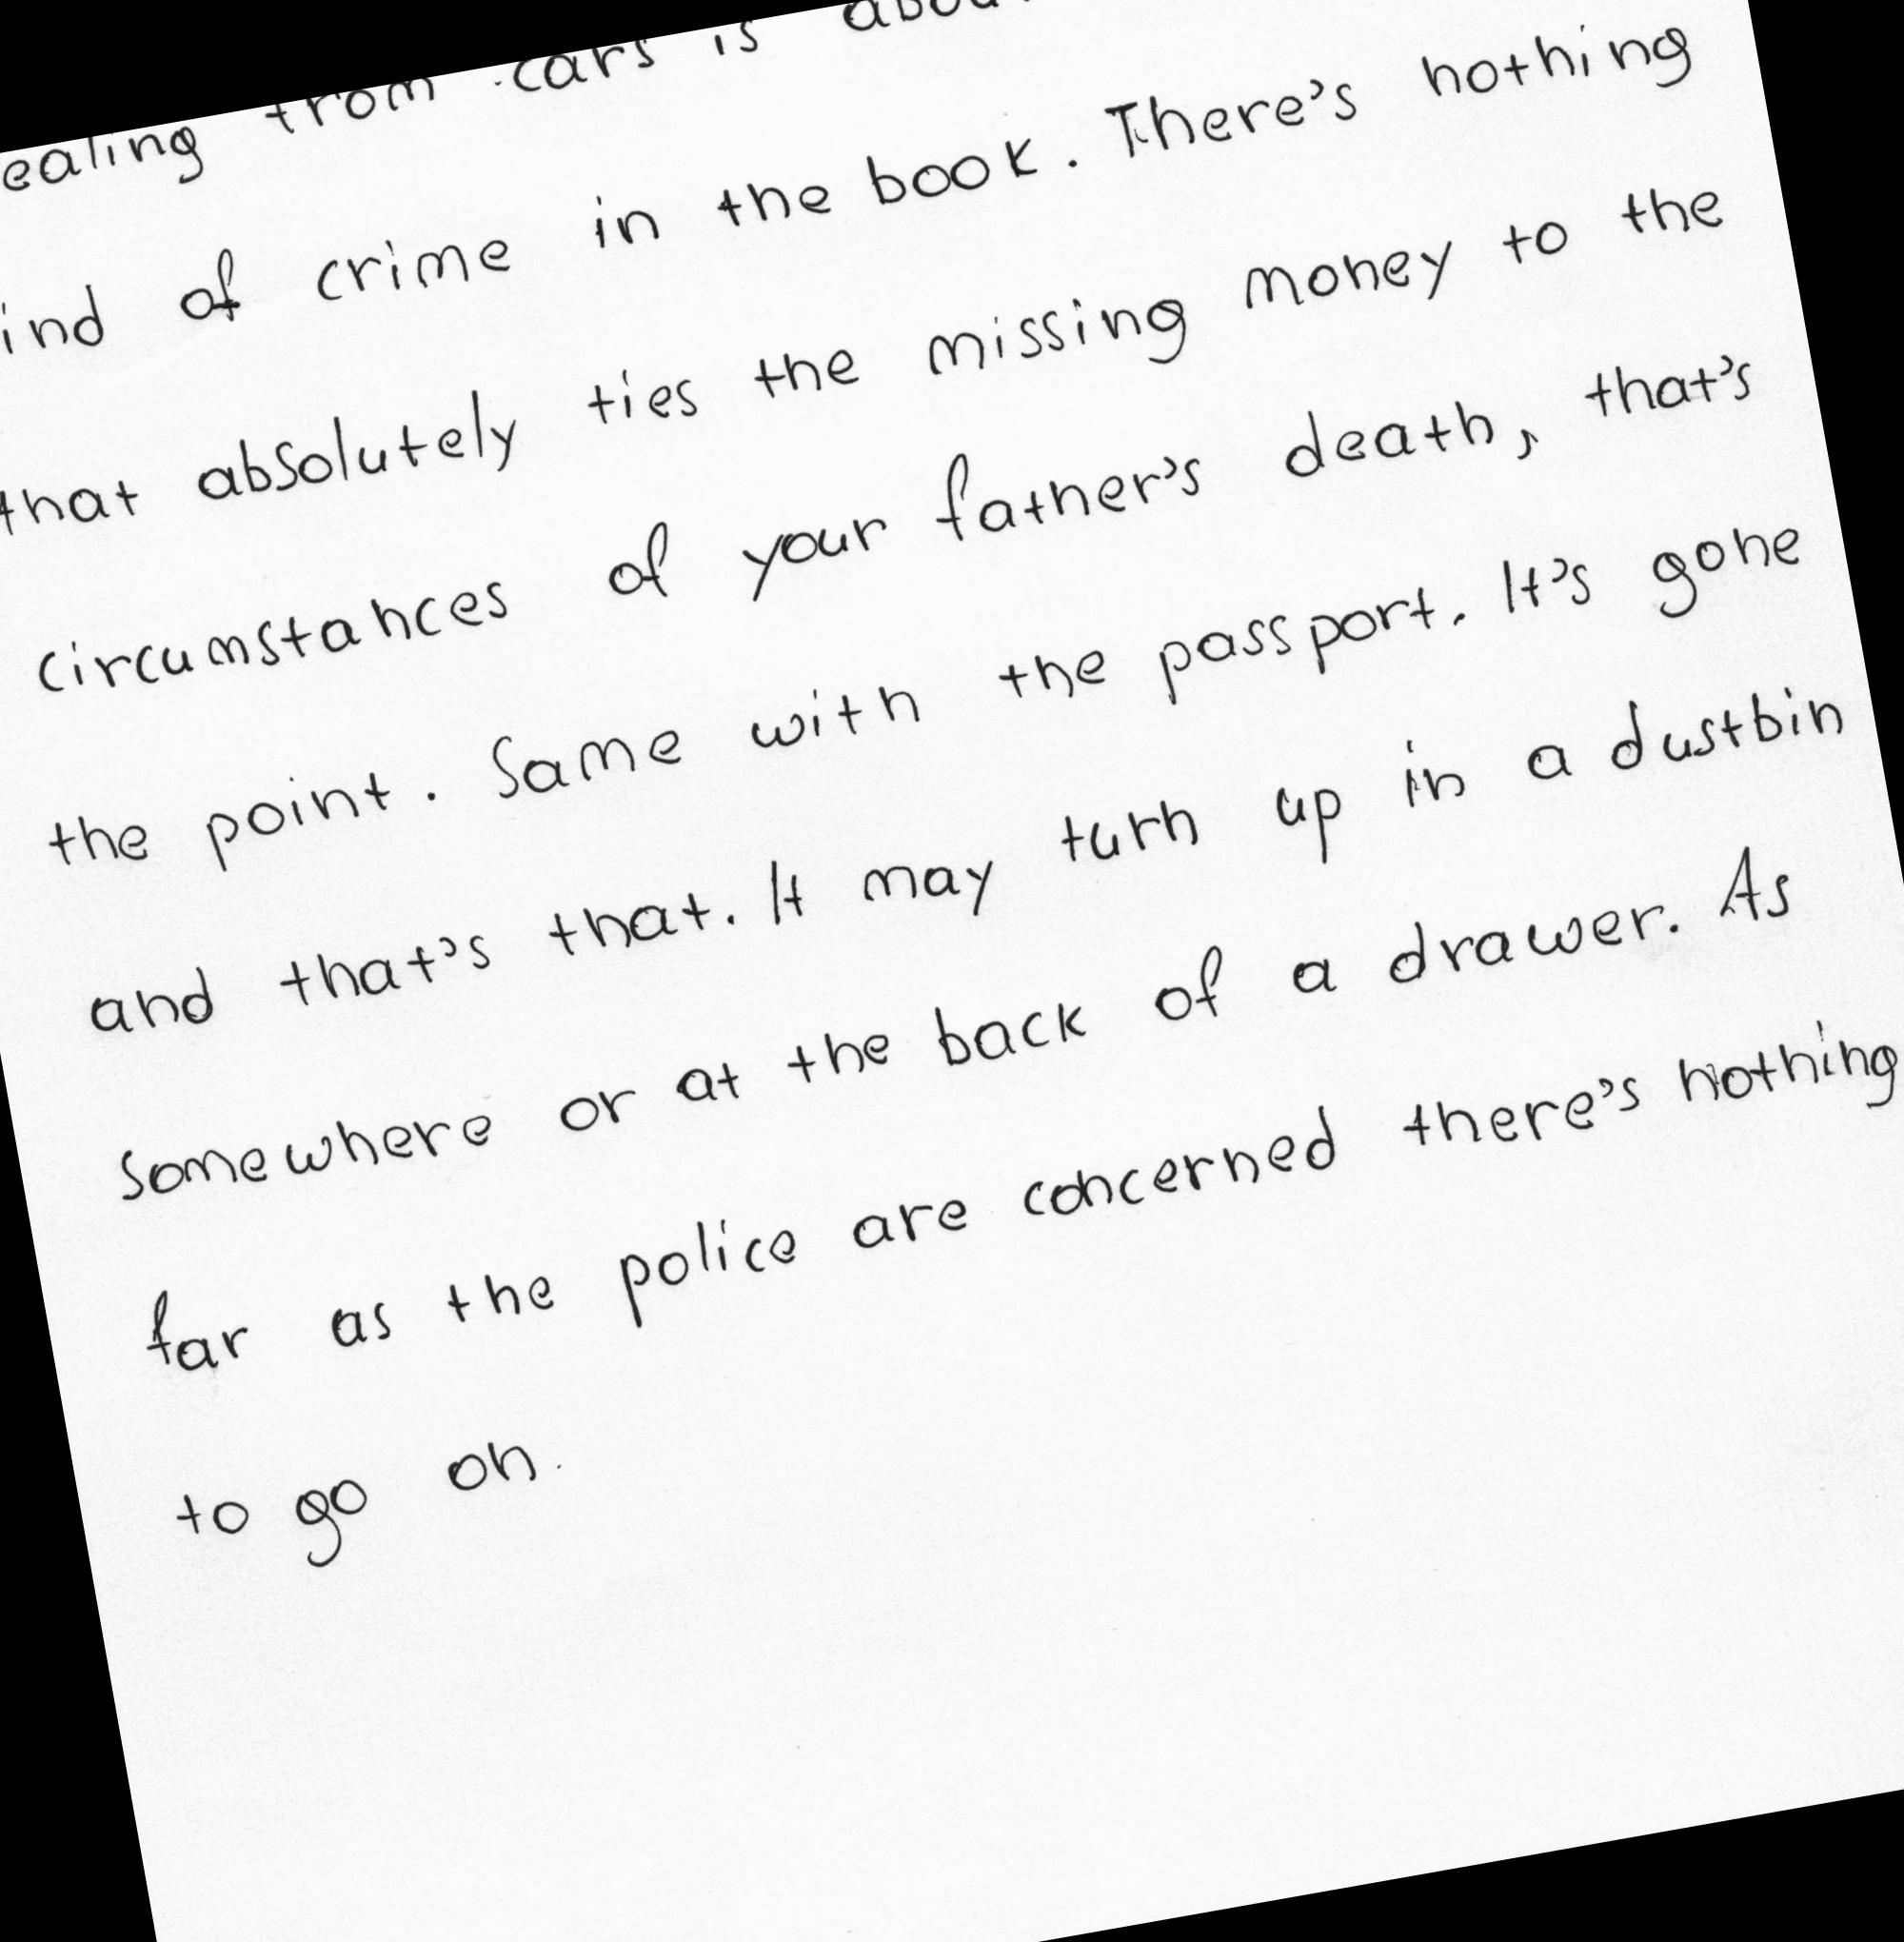 from cars is
of crime in the book. There's nothing
that absolutely ties the missing money to the
circumstances of your father's death, that's
the point. Same with the passport. It's gone
and that's that. It may turn up in a dustbin
somewhere or at the back of a drawer. As
far as the police are concerned there's nothing
to go on.